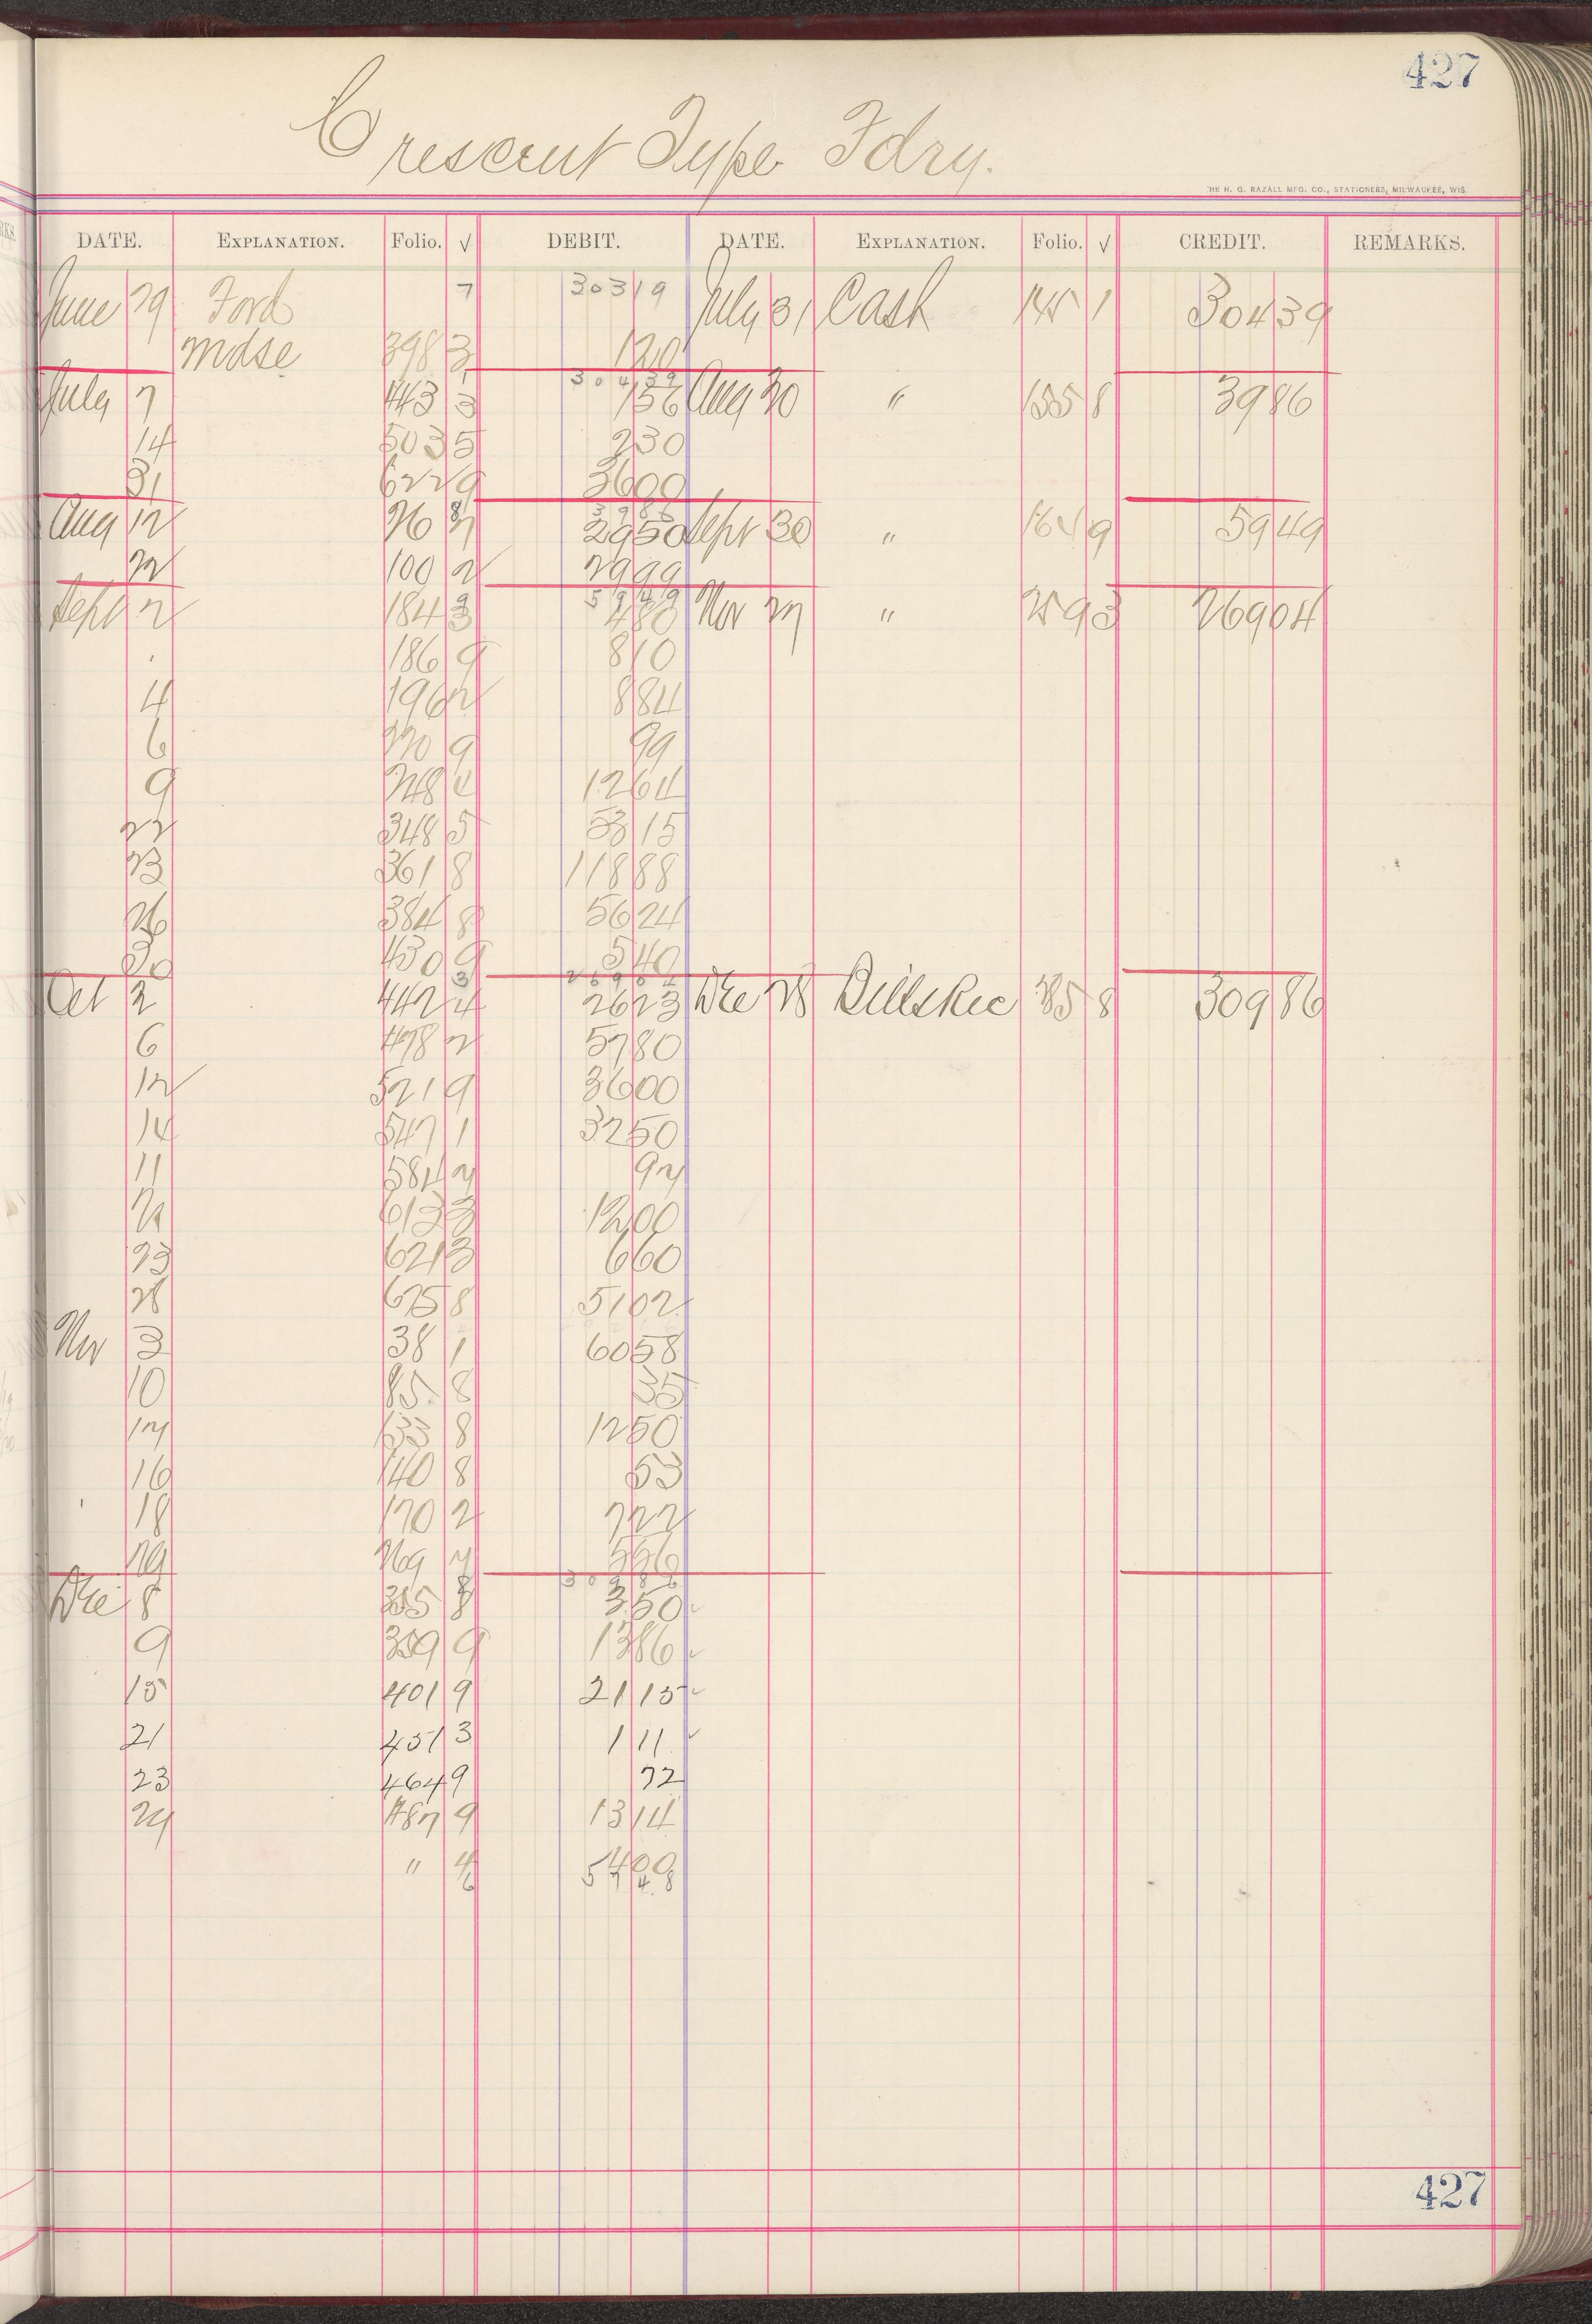 427
Crescent Type Fdry.
THE H. G. RAZALL MFG. CO., STATIONERS, MILWAUKEE, WIS.
DATE. EXPLANATION. Folio. √ DEBIT. DATE. EXPLANATION. Folio. √ CREDIT. REMARKS.
June 29 Ford 7 303 19 July 31 Cash 145 1 304 39
Mdse 398 3 1 20
304 39
July 7 443 3 1 56 Aug 30 " 155 8 39 86
14 503 5 2 30
31 622 9 36 00
39 86
Aug 12 76 29 50 Sept 30 " 164 9 59 49
22 100 2 29 99
59 49
Sept 2 184 3 4 80 Nov 27 " 259 3 269 04
186 9 8 10
4 196 2 8 84
6 220 9 99
9 248 12 64
22 348 5 53 15
23 361 8 118 88
26 384 8 56 24
30 430 9 5 40
269 04
Oct 2 442 4 26 23 Dec 28 Bills Rec 358 8 309 86
6 478 2 57 80
12 521 9 36 00
14 547 1 32 50
584 2 92
21 613 3 12 00
23 621 3 6 60
28 675 8 51 02
Nov 3 38 1 60 58
10 85 8 35
133 8 12 50
16 140 8 53
18 170 2 7 22
269 5 56
309 86
Dec 8 355 8 3 50
9 359 9 13 86
15 401 9 21 15
21 451 3 1 11
23 464 9 72
29 487 9 13 14
" 4
54 48
427